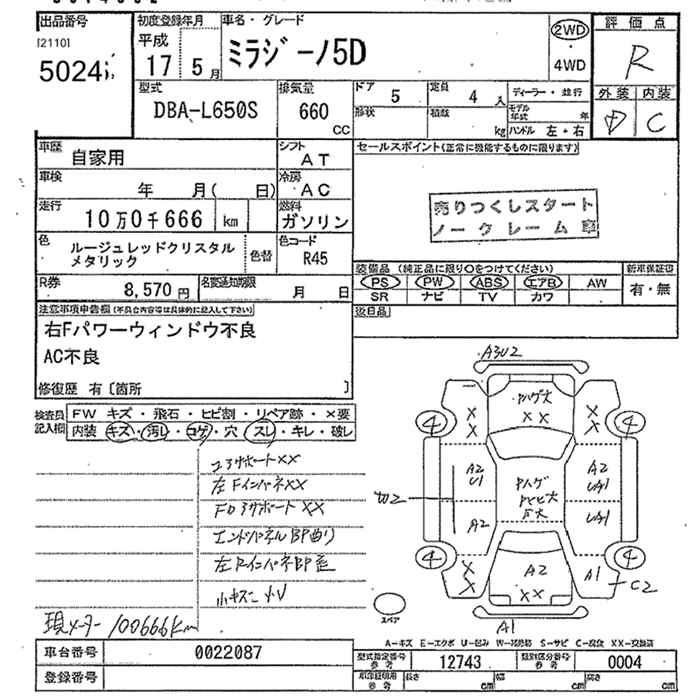 出品番号 初度登録年月 車名・グレード 評価点
[2110]
5024
平成
17 5月
ミラジーノ5D
2WD
・
4WD
R
型式 排気量 ドア 定員 ディーラー・並行 外装 内装
DBA-L650S 660 CC
5 4 人
形状 積載 kg モデル年式 年
ハンドル 左・右
D C
車歴 自家用 シフト AT
セールスポイント(正常に機能するものに限ります)
車検 年 月( 日) 冷房 AC
走行 10万0千666 km 燃料 ガソリン
売りつくしスタート
ノークレーム車
色 ルージュレッドクリスタル
メタリック
色替 色コード R45
装備品 (純正品に限り○をつけてください) 新車保証書
PS PW ABS エアB AW 有・無
SR ナビ TV カワ
R券 8,570円 名変通知期限 月 日
注意事項申告欄(不具合内容等は具体的に記入して下さい) 後日品
右Fパワーウィンドウ不良
AC不良
修復歴 有〔箇所 〕
検査員記入欄 FW キズ・飛石・ヒビ割・リペア跡・×要
内装 キズ・汚レ・コゲ・穴・スレ・キレ・破レ
コアサポートXX
左FインパネXX
FDアサポート XX
エンドパネルBP曲り
左RインパネBP
現メーター 100666km
A3U2
XX
A2
U1
A2
A2
UA1
UA1
A2
XX
A1
C2
A1
4
4
4
4
スペア
A-キズ E-エクボ U-凹み W-補修跡 S-サビ C-腐食 XX-交換済
車台番号 0022087
型式指定番号 参考 12743 類別区分番号 参考 0004
登録番号
車庫証明用 参考 長さ cm 幅 cm 高さ cm